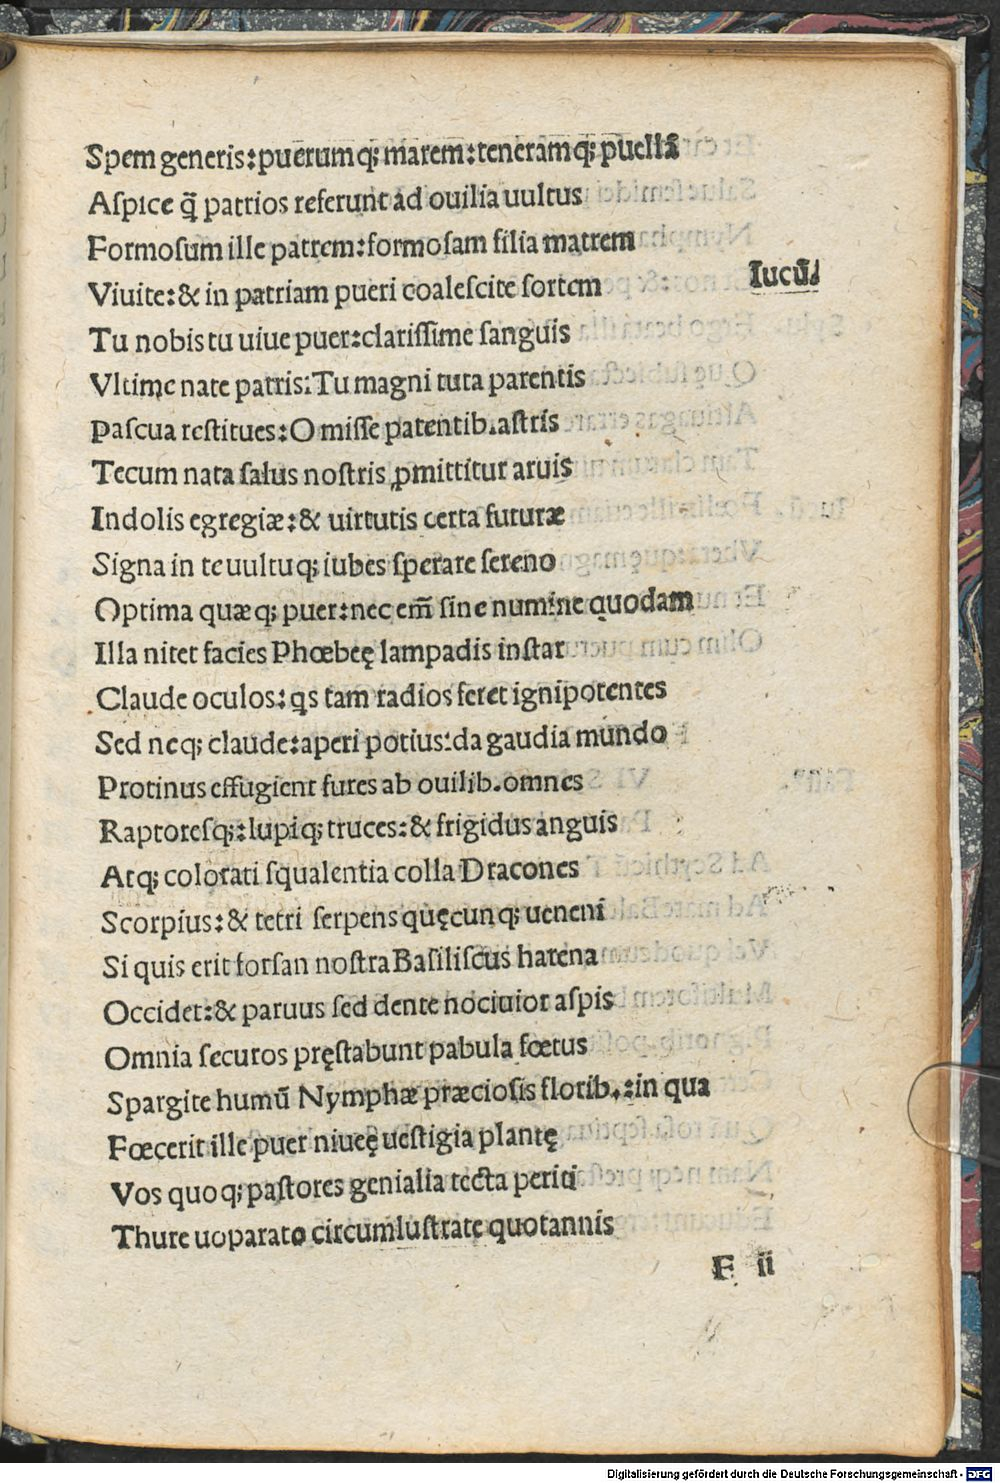 Spem generis:puerumq;marem:teneramq; puellã
Aſpice q̃ patrios referunt ad ouilia uultus
Formoſum ille patrem:formoſam filia matrem
Viuite:& in patriam pueri coaleſcite ſortem
Iucũ.
Tu nobis tu uiue puer:clariſſime ſanguis
Vltime nate patris:Tu magni tuta parentis
Paſcua reſtitues:O miſſe patentib.aſtris
Tecum nata ſalus noſtris ꝓmittitur aruis
Indolis egregiæ:& uirtutis certa futuræ
Signa in te uultuq; iubes ſperare ſereno
Optima quæq; puer:nec em̃ ſine numine quodam
Illa nitet facies Phœbeę lampadis inſtar
Claude oculos:qs tam radios feret ignipotentes
Sed neq; claude:aperi potius:da gaudia mundo
Protinus effugient fures ab ouilib.omnes
Raptoreſq;:lupiq; truces:& frigidus anguis
Atq; colorati ſqualentia colla Dracones
Scorpius:& tetri ſerpens quęcunq; ueneni
Si quis erit forſan noſtra Baſiliſcus harena
Occidet:& paruus ſed dente nociuior aſpis
Omnia ſecuros pręſtabunt pabula fœtus
Spargite humũ Nymphæ præcioſis florib.:in qua
Fœcerit ille puer niueę ueſtigia plantę
Vos quoq; paſtores genialia tecta periti
Thure uoparato circumluſtrate quotannis
F ii
Digitalisierung gefördert durch die Deutsche Forschungsgemeinschaft - DFG